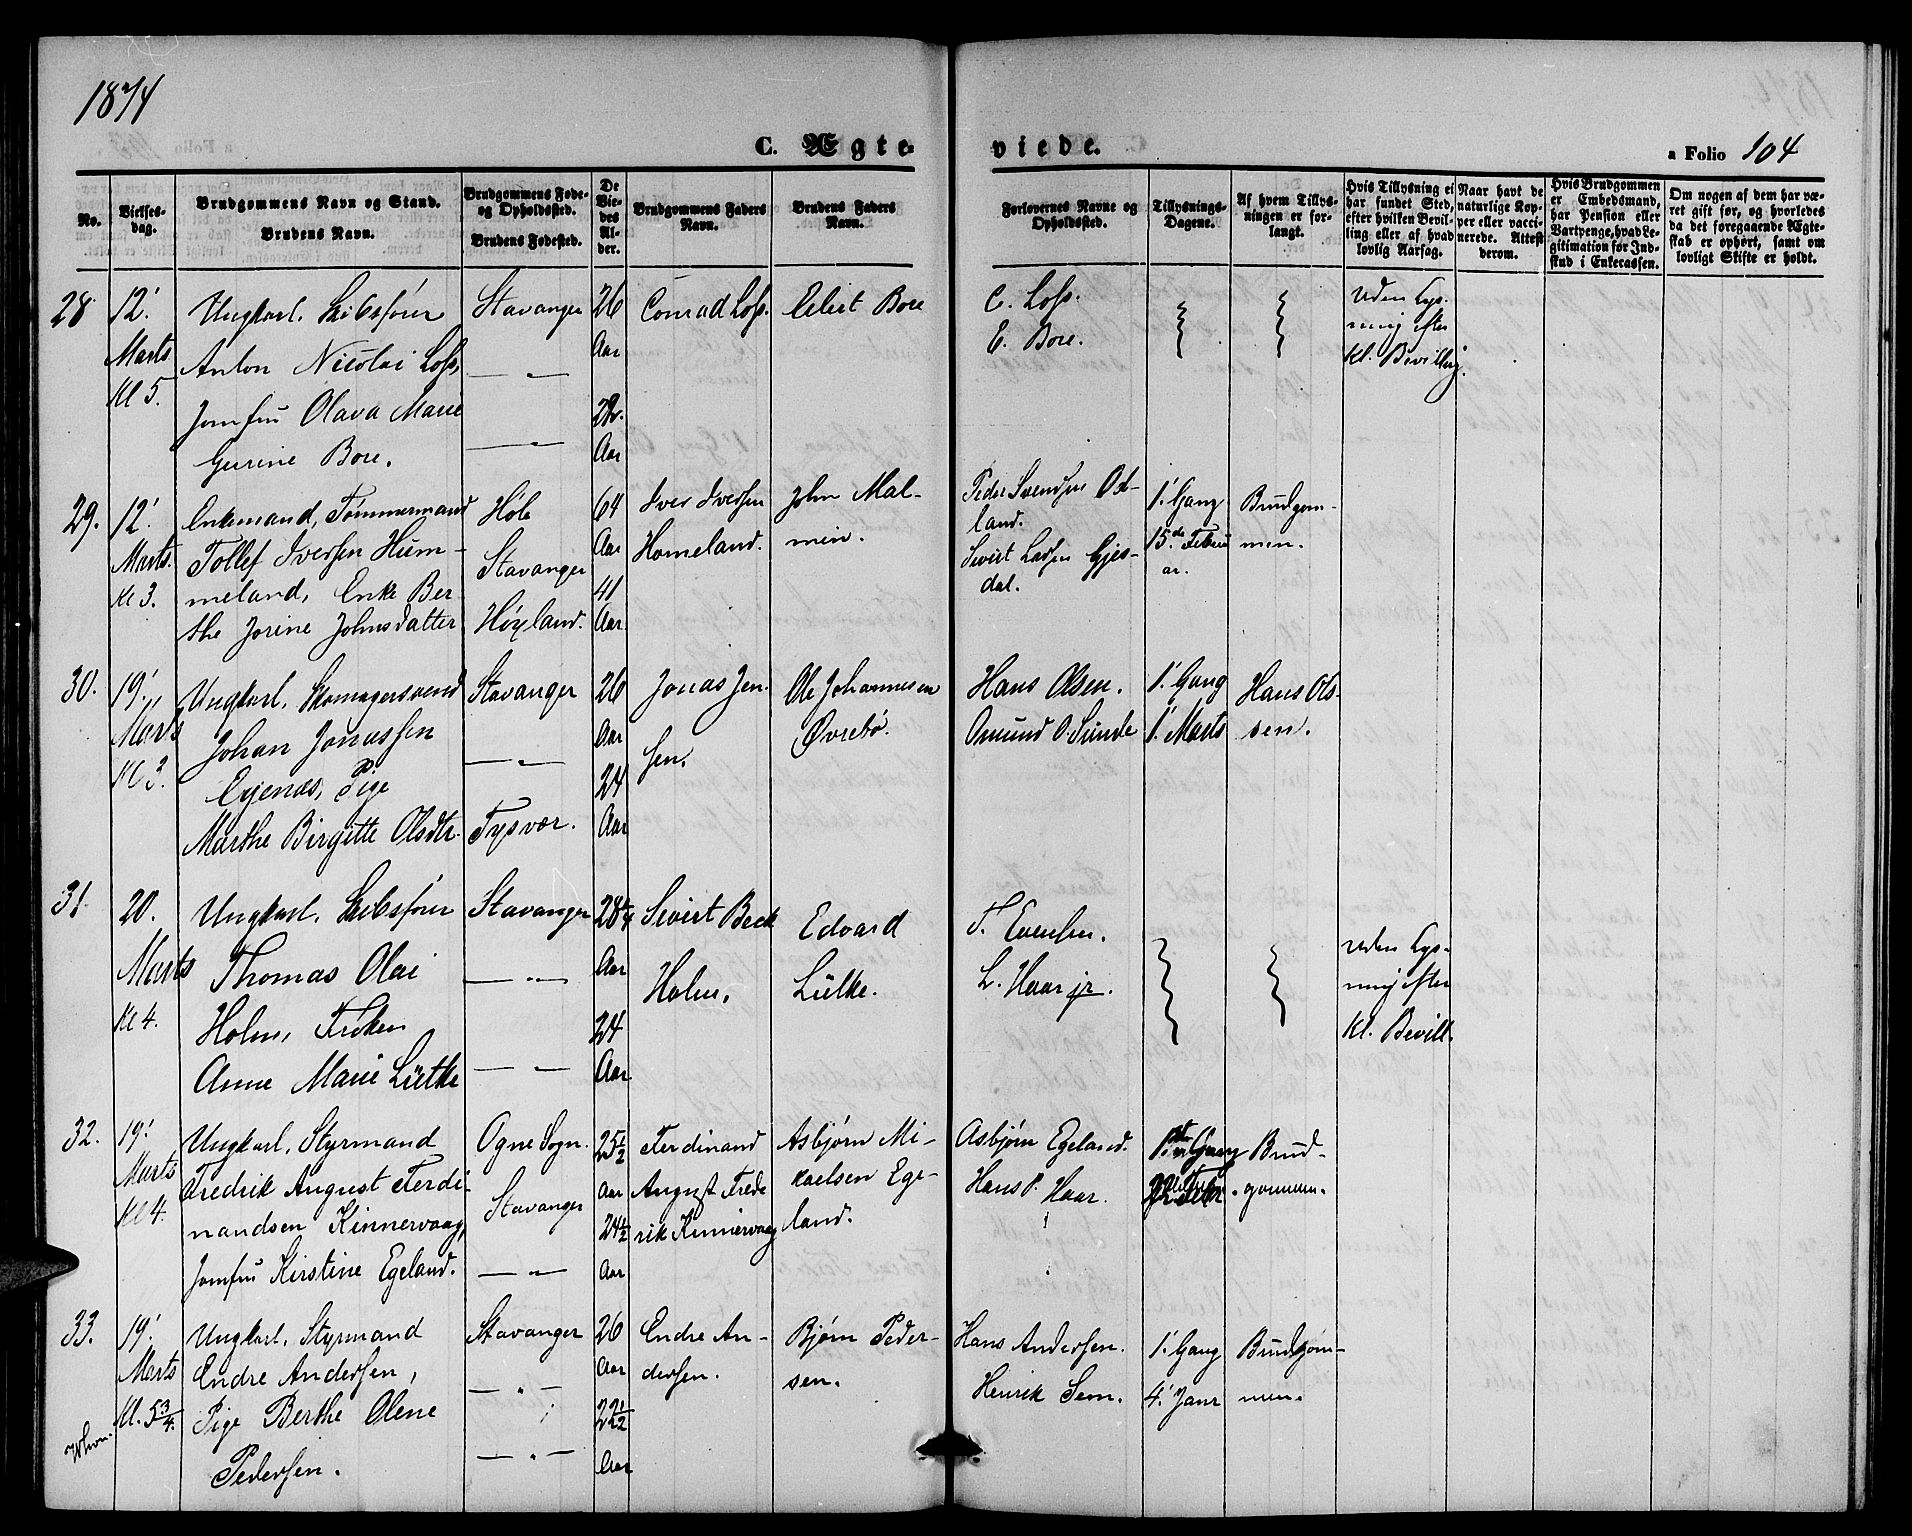 1874
C. Ægte-
viede.
a Folio 104
No.
Vielses-
dag.
Brudgommens Navn og Stand.
Brudens Navn.
Brudgommens Føde-
og Opholdssted.
Brudens Fødested.
De
Vie-
des
Al-
der.
Brudgommens Faders
Navn.
Brudens Faders
Navn.
Forlovernes Navne og
Opholdssted.
Tillysnings-
Dagene.
Af hvem Tillys-
ningen er for-
langt.
Hvis Tillysning ei
har fundet Sted,
efter hvilken Bevil-
ling eller af hvad
lovlig Aarsag.
Naar havt de
naturlige Kop-
per eller vacci-
nerede. Attest
derom.
Hvis Brudgommen
er Embedsmand,
har Pension eller
Vartpenge, hvad Le-
gitimation for Ind-
skud i Enkecassen.
Om nogen af dem har væ-
ret gift før, og hvorledes
da det foregaaende Ægte-
skab er ophørt, samt om
lovligt Skifte er holdt.
28.
12'
Marts
Kl 5.
Ungkarl. Skibsfører
Anton Nicolai Loss,
Jomfru Olava Marie
Gurine Bore.
Stavanger
— „ —
— „ —
26
Aar
Aar
Conrad Loss.
Eilert Bore
C. Loss.
E. Bore.
Uden Lys-
ning efter
Kl. Bevilling.
29.
12'
Marts.
Kl 3.
Enkemand, Tømmermand
Tollef Iversen Hum-
meland, Enke Ber-
the Jorine Johnsdatter
Høle
Stavanger
Høyland.
64
Aar
41
Aar
Iver Iversen
Homeland.
John Mal-
min.
Peder Svendsen Ost-
land.
Sivert Larsen Gjes-
dal.
1' Gang
15.de Febru
ar.
Brudgom-
men.
30.
19'
Marts
Kl 3.
Ungkarl. Skomagersvend
Johan Jonassen
Eyenæs, Pige
Marthe Birgitte Olsdtr.
Stavanger
— „ —
Tysvær.
26
Aar
24
Aar
Jonas Jen-
sen.
Ole Johannesen
Øvrebø.
Hans Olsen.
Osmund O. Sunde
1' Gang
1' Marts
Hans Ol-
sen.
31.
20.
Marts
Kl 4.
Ungkarl. Skibsfører
Thomas Olai
Holm, Frøken
Anne Marie Lütke
Stavanger
— „ —
— „ —
28¼
Aar
24
Aar
Sivert Beck
Holm,
Edvard
Lütke.
T. Evensen.
L. Haar jr.
Uden Lys-
ning efter
Kl. Bevill.
32.
19'
Marts
Kl 4.
Ungkarl. Styrmand
Fredrik August Ferdi-
nandsen Kinnervaag,
Jomfru Kirstine Egeland.
Ogne Sogn.
Stavanger
— „ —
25½
Aar
24½
Aar
Ferdinand
August Frede
rik Kinnervaag
Asbjørn Mi-
kaelsen Ege-
land.
Asbjørn Egeland.
Hans P. Haar.
1ste Gang
22 Febr.
Brud-
gommen.
33.
19'
Marts
Kl. 5¾
Ungkarl. Styrmand
Endre Andersen,
Pige Berthe Olene
Pedersen.
Stavanger
— „ —
— „ —
26
Aar
22½
Aar
Endre An-
dersen.
Bjørn Peder-
sen.
Hans Andersen.
Henrik Sem.
1' Gang
4' Janr
Brudgom-
men.